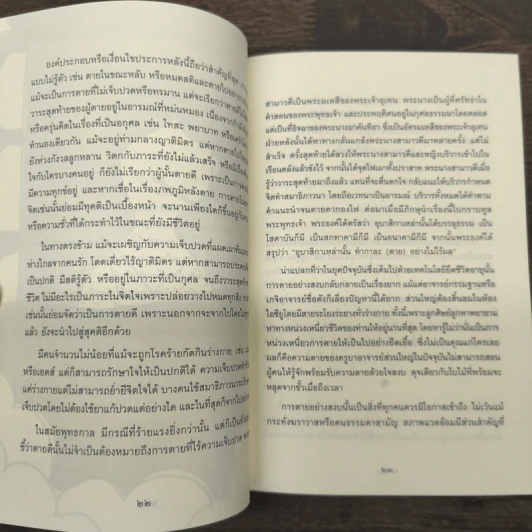 องค์ประกอบหรือเงื่อนไขประการหลังนี้ถือว่าสำคัญที่สุด การตาย
แบบไม่รู้ตัว เช่น ตายในขณะหลับ หรือหมดสติและตายไปอย่าง
แม้จะเป็นการตายที่ไม่เจ็บปวดหรือทรมาน แต่จะเรียกว่าตายดี
วาระสุดท้ายของผู้ตายอยู่ในอารมณ์ที่หม่นหมอง เนื่องจาก
หรือครุ่นคิดในเรื่องที่เป็นอกุศล เช่น โทสะ พยาบาท หรือ
ทำนองเดียวกัน แม้จะอยู่ท่ามกลางญาติมิตร แต่หากตายไป
ยังห่วงกังวลลูกหลาน วิตกกับภาระที่ยังไม่แล้วเสร็จ หรือมี
ใจกับใครบางคนอยู่ ก็ยังไม่เรียกว่าผู้นั้นตายดี เพราะเป็น
มีความทุกข์อยู่ และหากเชื่อในเรื่องภพภูมิหลังตาย การตาย
จิตเช่นนั้นย่อมมีทุคติเป็นเบื้องหน้า จะนานเพียงใดก็ขึ้นอยู่กับ
หรือความชั่วที่ได้กระทำไว้ในขณะที่ยังมีชีวิตอยู่
ในทางตรงข้าม แม้จะเผชิญกับความเจ็บปวดที่แผดเผา
ห่างไกลจากคนรัก โดดเดี่ยวไร้ญาติมิตร แต่หากสามารถประคอง
เป็นปกติ มีสติรู้ตัว หรืออยู่ในภาวะที่เป็นกุศล จนถึงวาระสุดท้าย
ชีวิต ไม่มีอะไรเป็นภาระในจิตใจเพราะปล่อยวางไปหมดทุกสิ่ง
เช่นนั้นย่อมจัดว่าเป็นการตายดี เพราะนอกจากจะจากไปโดย
แล้ว ยังจะนำไปสู่สุคติอีกด้วย
มีคนจำนวนไม่น้อยที่แม้จะถูกโรคร้ายกัดกินร่างกาย เช่น
หรือเอดส์ แต่ก็สามารถรักษาใจให้เป็นปกติได้ ความเจ็บปวด
แค่ร่างกายแต่ไม่สามารถย่ำยีจิตใจได้ บางคนใช้สมาธิภาวนา
เจ็บปวดโดยไม่ต้องใช้ยาแก้ปวดแต่อย่างใด และในที่สุดก็จากไป
ในสมัยพุทธกาล มีกรณีที่ร้ายแรงยิ่งกว่านั้น แต่ก็เป็นตัวอย่าง
ชี้ว่าตายดีนั้นไม่จำเป็นต้องหมายถึงการตายที่ไร้ความเจ็บปวด
๒๒
สามาวดีเป็นพระมเหสีของพระเจ้าอุเทน พระนางเป็นผู้ที่ศรัทธาใน
คำสอนของพระพุทธเจ้า และประพฤติตนอยู่ในกุศลธรรมโดยตลอด
แต่เป็นที่อิจฉาของพระนางมาคันทิยา ซึ่งเป็นอัครมเหสีของพระเจ้าอุเทน
ฝ่ายหลังนั้นได้หาทางกลั่นแกล้งพระนางสามาวดีมาหลายครั้ง แต่ไม่
สำเร็จ ครั้งสุดท้ายได้ลวงให้พระนางสามาวดีและหญิงบริวารเข้าไปใน
เรือนคลังแล้วขังไว้ จากนั้นได้จุดไฟเผาทั้งปราสาท พระนางสามาวดีเมื่อ
รู้ว่าวาระสุดท้ายมาถึงแล้ว แทนที่จะตื่นตกใจ กลับแนะให้บริวารกำหนด
จิตทำสมาธิภาวนา โดยถือเวทนาเป็นอารมณ์ บริวารทั้งหมดได้ทำตาม
คำแนะนำจนตายคากองไฟ ต่อมาเมื่อมีภิกษุนำเรื่องนี้ไปกราบทูล
พระพุทธเจ้า พระองค์ได้ตรัสว่า อุบาสิกาเหล่านั้นได้บรรลุธรรม เป็น
โสดาบันก็มี เป็นสกทาคามีก็มี เป็นอนาคามีก็มี จากนั้นพระองค์ได้
สรุปว่า "อุบาสิกาเหล่านั้น ทำกาละ (ตาย) อย่างไม่ไร้ผล"
น่าแปลกที่ว่าในยุคปัจจุบันซึ่งเต็มไปด้วยเทคโนโลยียืดชีวิตอายุนั้น
การตายอย่างสงบกลับกลายเป็นเรื่องยาก แม้แต่อาจารย์กรรมฐานหรือ
เกจิอาจารย์ชื่อดังก็เลี่ยงปัญหานี้ได้ยาก ส่วนใหญ่ต้องสิ้นลมในห้อง
ไอซียูโดยมีสายระโยงระยางทั่วร่างกาย ทั้งนี้เพราะลูกศิษย์ลูกหาพยายาม
หาทางหน่วงเหนี่ยวชีวิตของท่านให้อยู่นานที่สุด โดยหารู้ไม่ว่านั่นเป็นการ
หน่วงเหนี่ยวการตายให้เป็นไปอย่างยืดเยื้อ ซึ่งไม่เป็นคุณแก่ใครเลย
ผลก็คือความตายของครูบาอาจารย์ส่วนใหญ่ในปัจจุบันไม่สามารถสอน
ผู้คนให้รู้จักพร้อมรับความตายด้วยใจสงบ ดุจเดียวกับใบไม้ที่พร้อมจะ
หลุดจากขั้วเมื่อถึงเวลา
การตายอย่างสงบนั้นเป็นสิ่งที่ทุกคนควรมีโอกาสเข้าถึง ไม่เว้นแม้
กระทั่งฆราวาสหรือคนธรรมดาสามัญ สภาพแวดล้อมมีส่วนสำคัญที่
๒๓